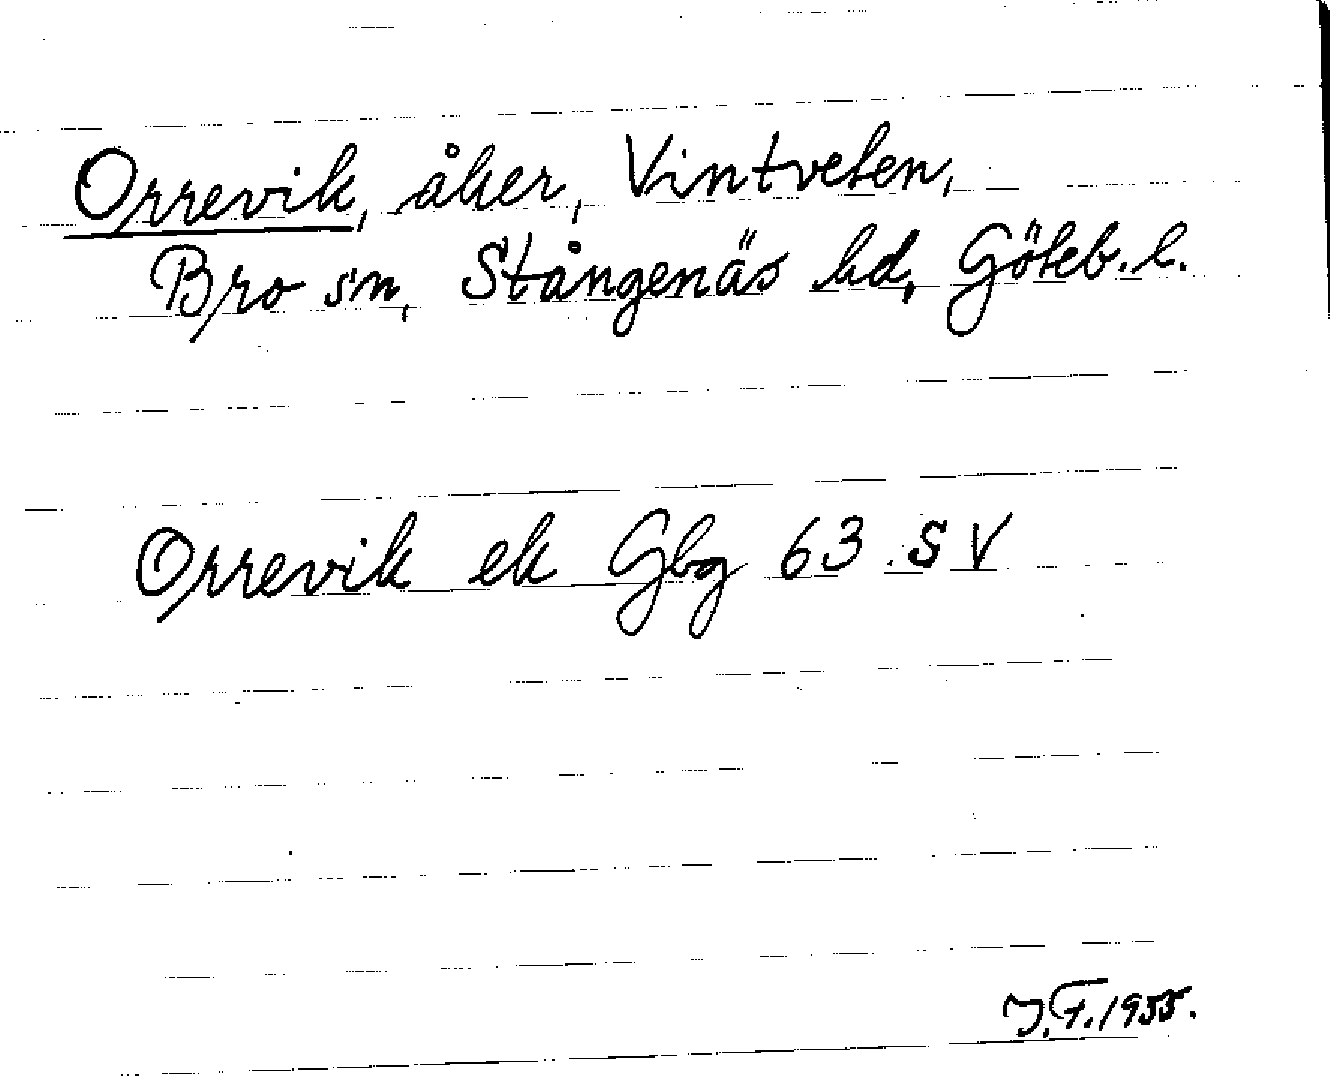 Orrevik, åker, Vintveten,
Bro sn, Stångenäs hd, Göteb. l.
Orrevik ek Gbg 63 SV
J.F. 1955.